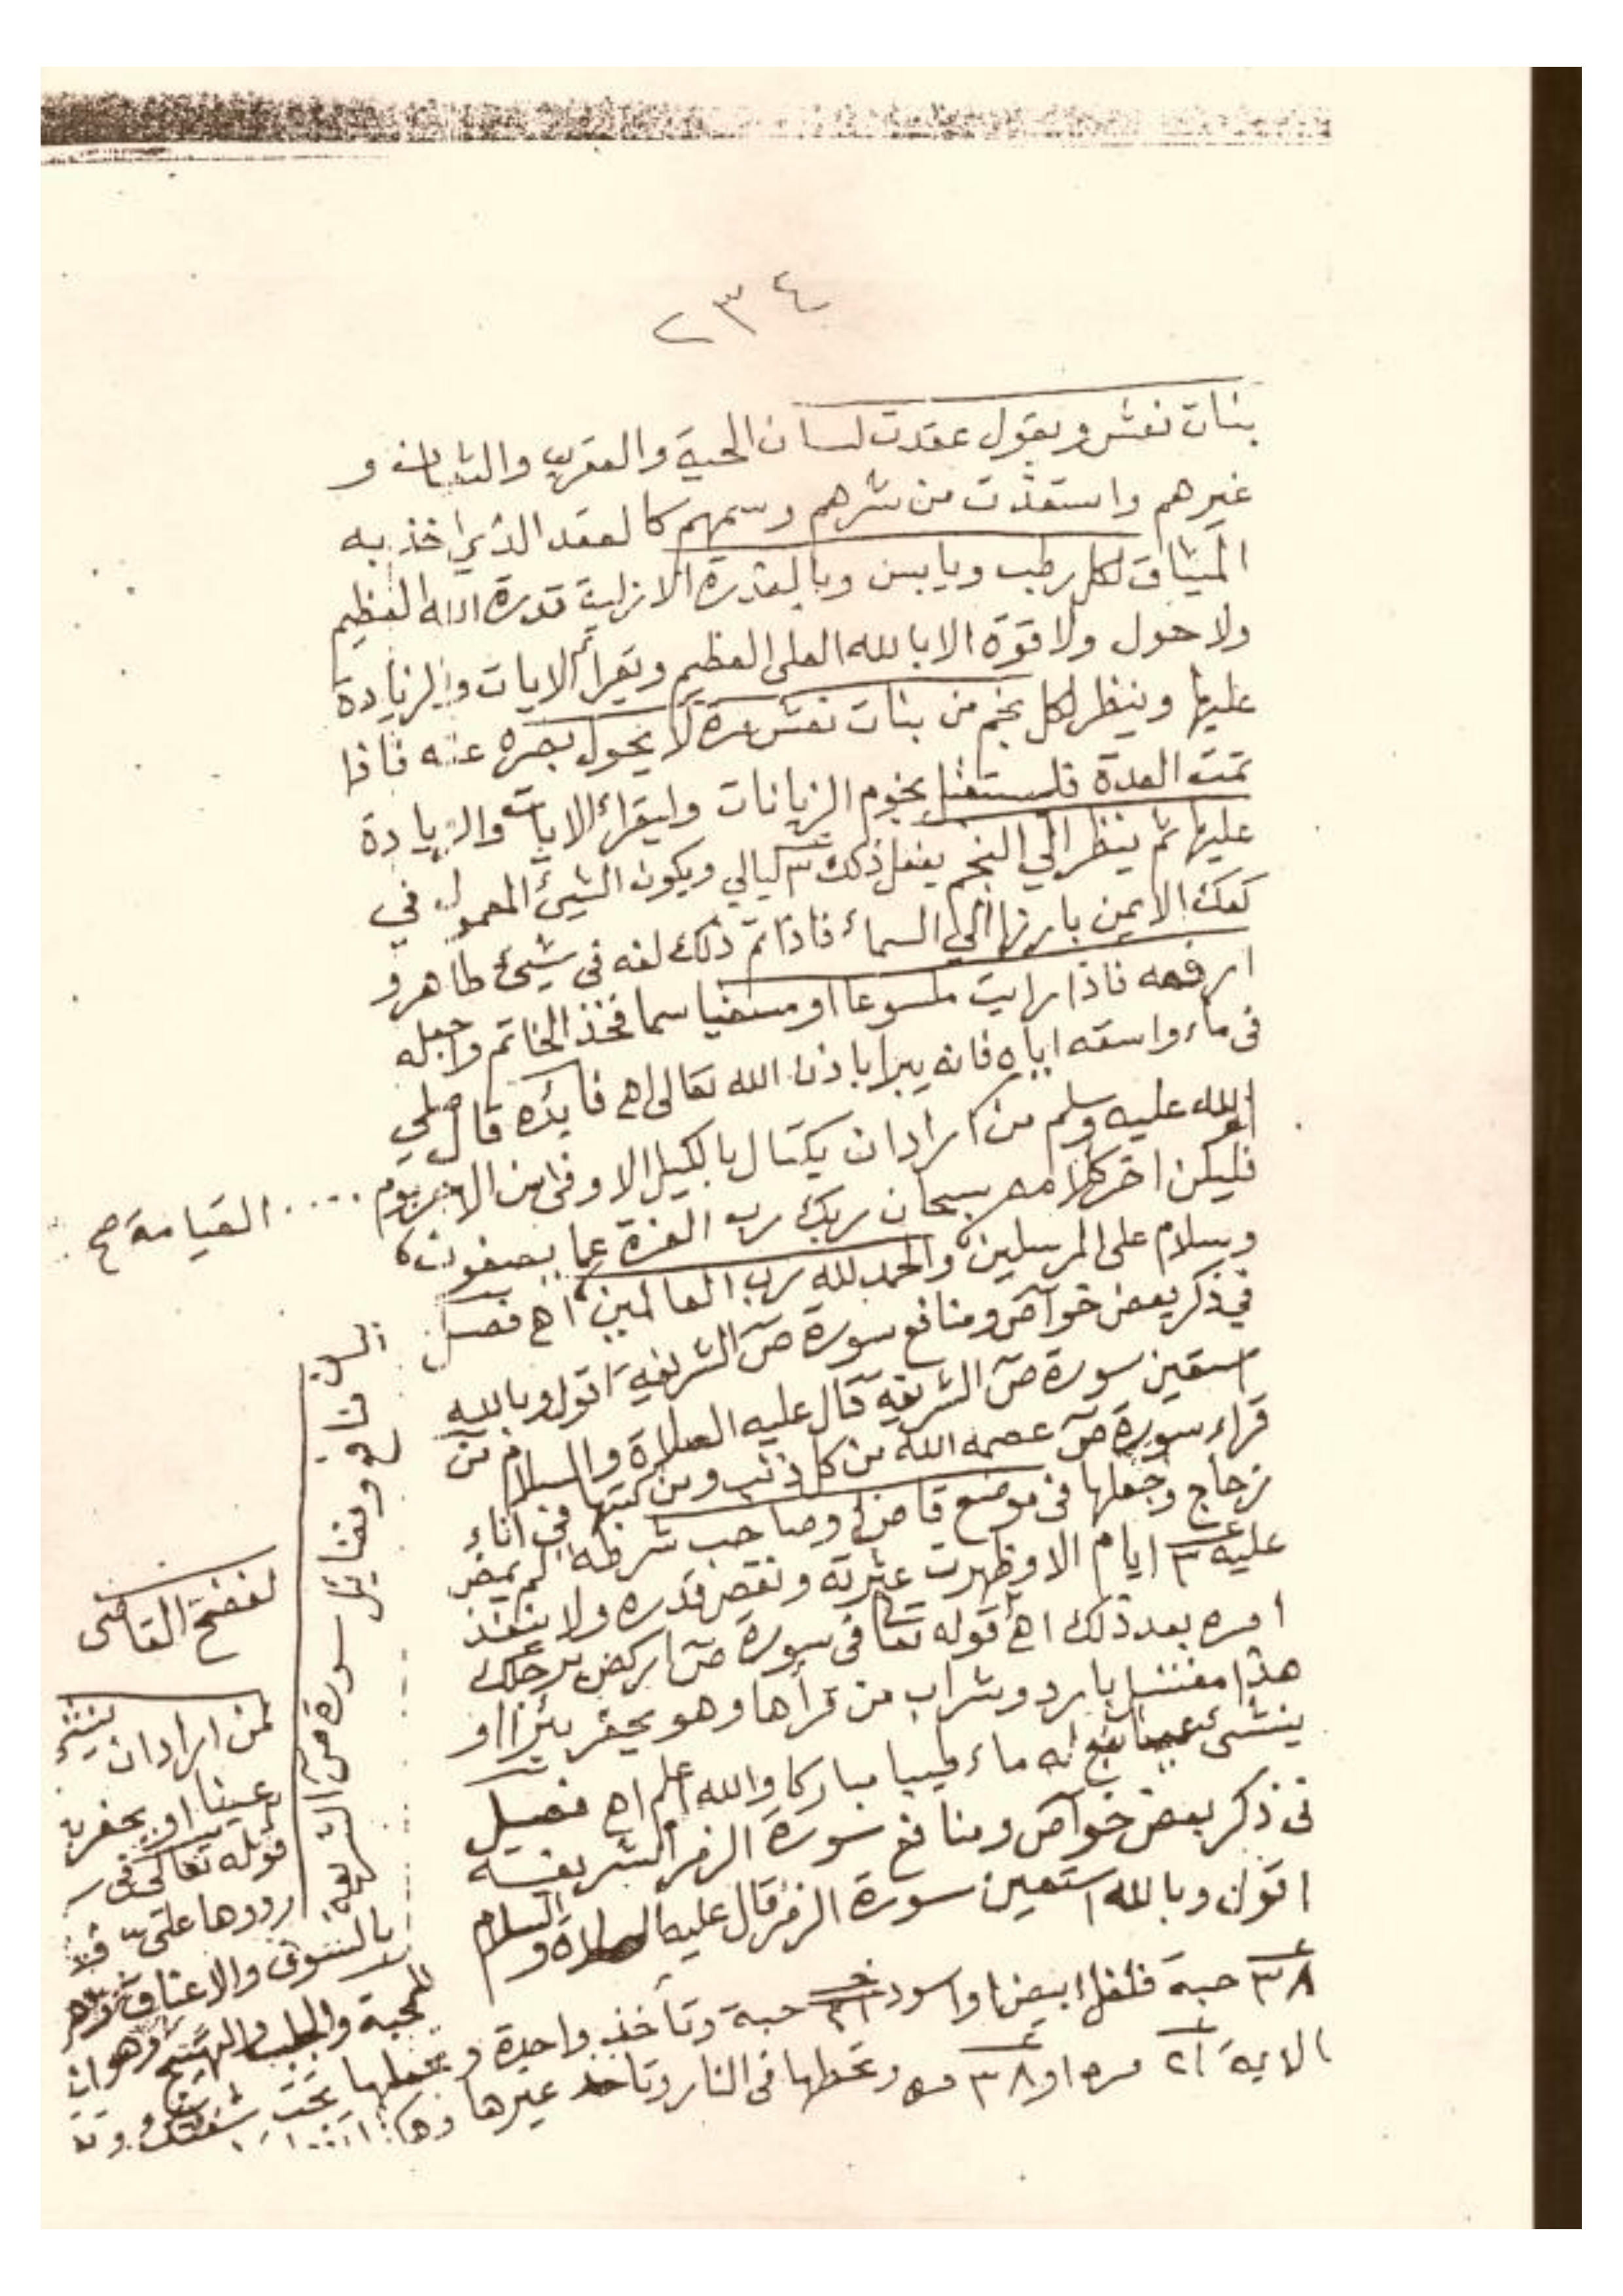 ٢٣٤
بنات نعش ويقول عقدت لسان الحية والعقرب والثعبان و
غيرهم واستعذت من شرهم وسمهم كالعقد الذي اخذ به
الميثاق لكل رطب ويابس وبالقدرة الازلية قدرة الله العظيم
ولا حول ولا قوة الا بالله العلى العظيم ويقرأ الايات والزيادة
عليها وينظر لكل نجم من بنات نعش مرة لا يحول بصره عنه فاذا
تمت العدة نجوم الزبانات وليقراء الايات والزيادة
عليها ثم ينظر الي النجم يفعل ذلك ٣ ليالي ويكون الشيئ المعمول في
كفك الايمن بارزها الي السماء فاذا تم ذلك لفه في شيئ طاهر و
ارفعه فاذا رايت ملسوعا او سما فخذ الخاتم واجعله
فى ماء واسقه اياه فانه يبرا باذن الله تعالى اهـ فائده قال صلي
الله عليه وسلم من اراد ان يكتال بالكيل الاوفى من الاجر يوم .... القيامة صح
فليكن اخر كلامه سبحان ربك رب العزة عما يصفون
وسلام على المرسلين والحمد لله رب العالمين اهـ فصل
في ذكر بعض خواص ومنافع سورة صٓ الشريفة اقول وبالله
استعين سورة صٓ الشريفة قال عليه الصلاة والسلام من
قراء سورة صٓ عصمه الله من كل ذنب ومن كتبها في اناء
زجاج وجعلها فى موضع قاضى وصاحب شرطه لم يمض
عليه ٣ ايام الا وظهرت عثرته ونقص قدره ولا ينفذ
امره بعد ذلك اهـ قوله تعا فى سورة صٓ اركض برجلك
هذا مغتسل بارد وشراب من قرأها وهو يحفر بئرا او
ينشئ عينا نبع له ماء طيبا مباركا والله اعلم اهـ فصل
فى ذكر بعض خواص ومنافع سورة الزمر الشريفة
اقول وبالله استعين سورة الزمر قال عليه الصلاة والسلام
منافع وفضايل سورة صٓ الشريفة
لفضح القاضى
لمن اراد ان ينشئ
عينا او يحفر بئر
قوله تعالى فى
ردوها علىّ
بالسوق والاعناق
للمحبة والجلب والتهييج وهو ان
٣٨ حبة فلفل ابيض او اسود ٢١ حبة وتأخذ واحدة وتجعلها تحت شفتك
الاية ٢١ مره او ٣٨ مره وتحطها فى النار وتاخذ غيرها وهكذا